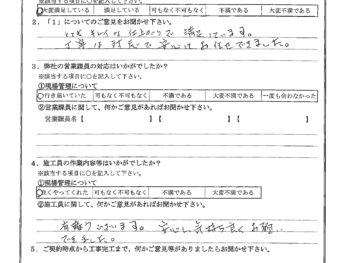 ※該当する項目に○を記入して下さい。
大変満足している 満足している 可もなく不可もなく 不満である 大変不満である
2.「1」についてのご意見をお聞かせ下さい。
とてもキレイな仕上がりで満足しています。
丁寧な対応で安心してお任せできました。
3.弊社の営業課員の対応はいかがでしたか?
※該当する項目に○を記入して下さい。
①現場管理について
行き届いていた 可もなく不可もなく 不満である 大変不満である 一度も会わなかった
②営業課員に関して、何かご意見があればお聞かせ下さい。
営業課員名【 】【 】【 】
4.施工員の作業内容等はいかがでしたか?
※該当する項目に○を記入して下さい。
①現場管理について
良くやってくれた 可もなく不可もなく 不満である 大変不満である
②施工員に関して、何かご意見があればお聞かせ下さい。
有難うございます。安心し気持ち良くお願い
できました。
5.ご契約時点から工事完工まで、何かご意見等がありましたらお聞かせ下さい。